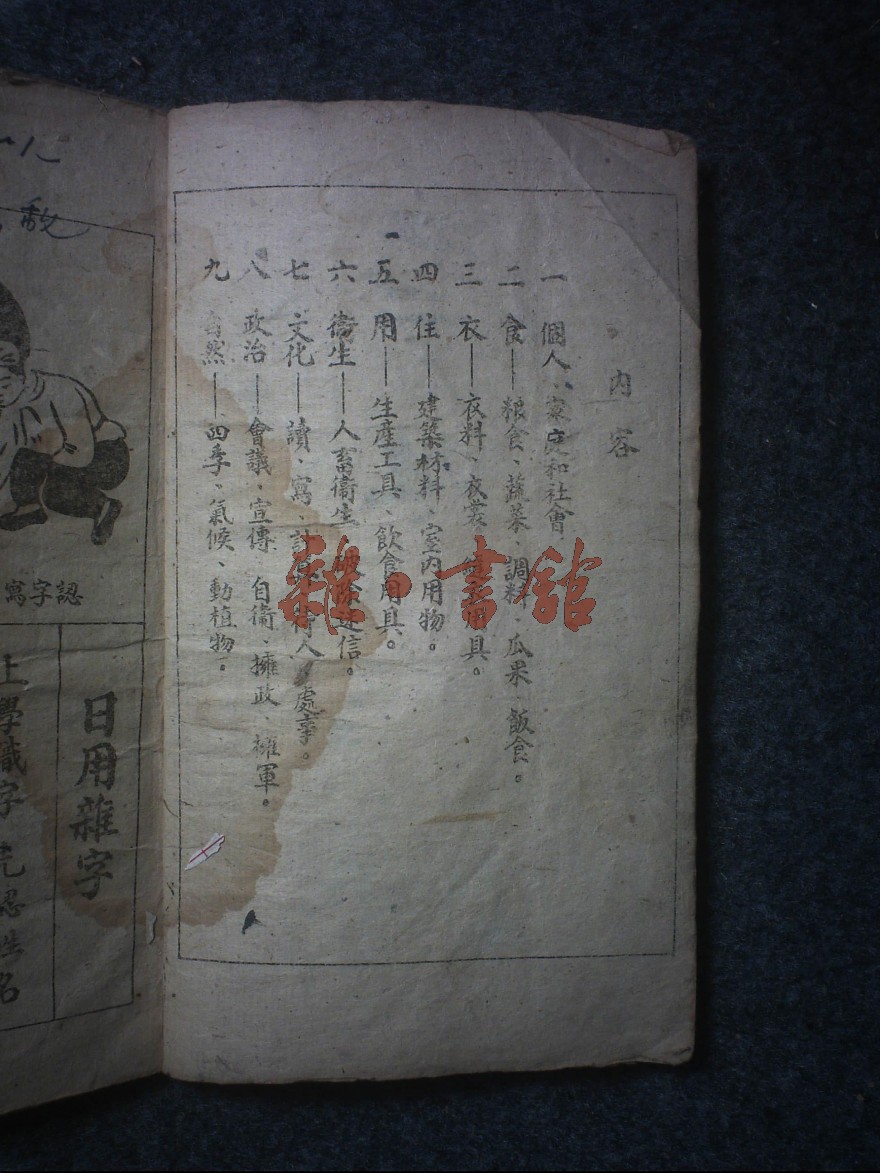 內容
一 個人、家庭和社會。
二 食——粮食、蔬菜、調料、瓜果、飯食。
三 衣——衣料、衣裳、用具。
四 住——建築材料、室內用物。
五 用——生産工具、飲食用具。
六 衛生——人畜衛生、破除迷信。
七 文化——讀、寫、計算、待人、處事。
八 政治——會議、宣傳、自衛、擁政、擁軍。
九 自然——四季、氣候、動植物。
雜·書館
寫字認
日用雜字
上學識字 先認姓名